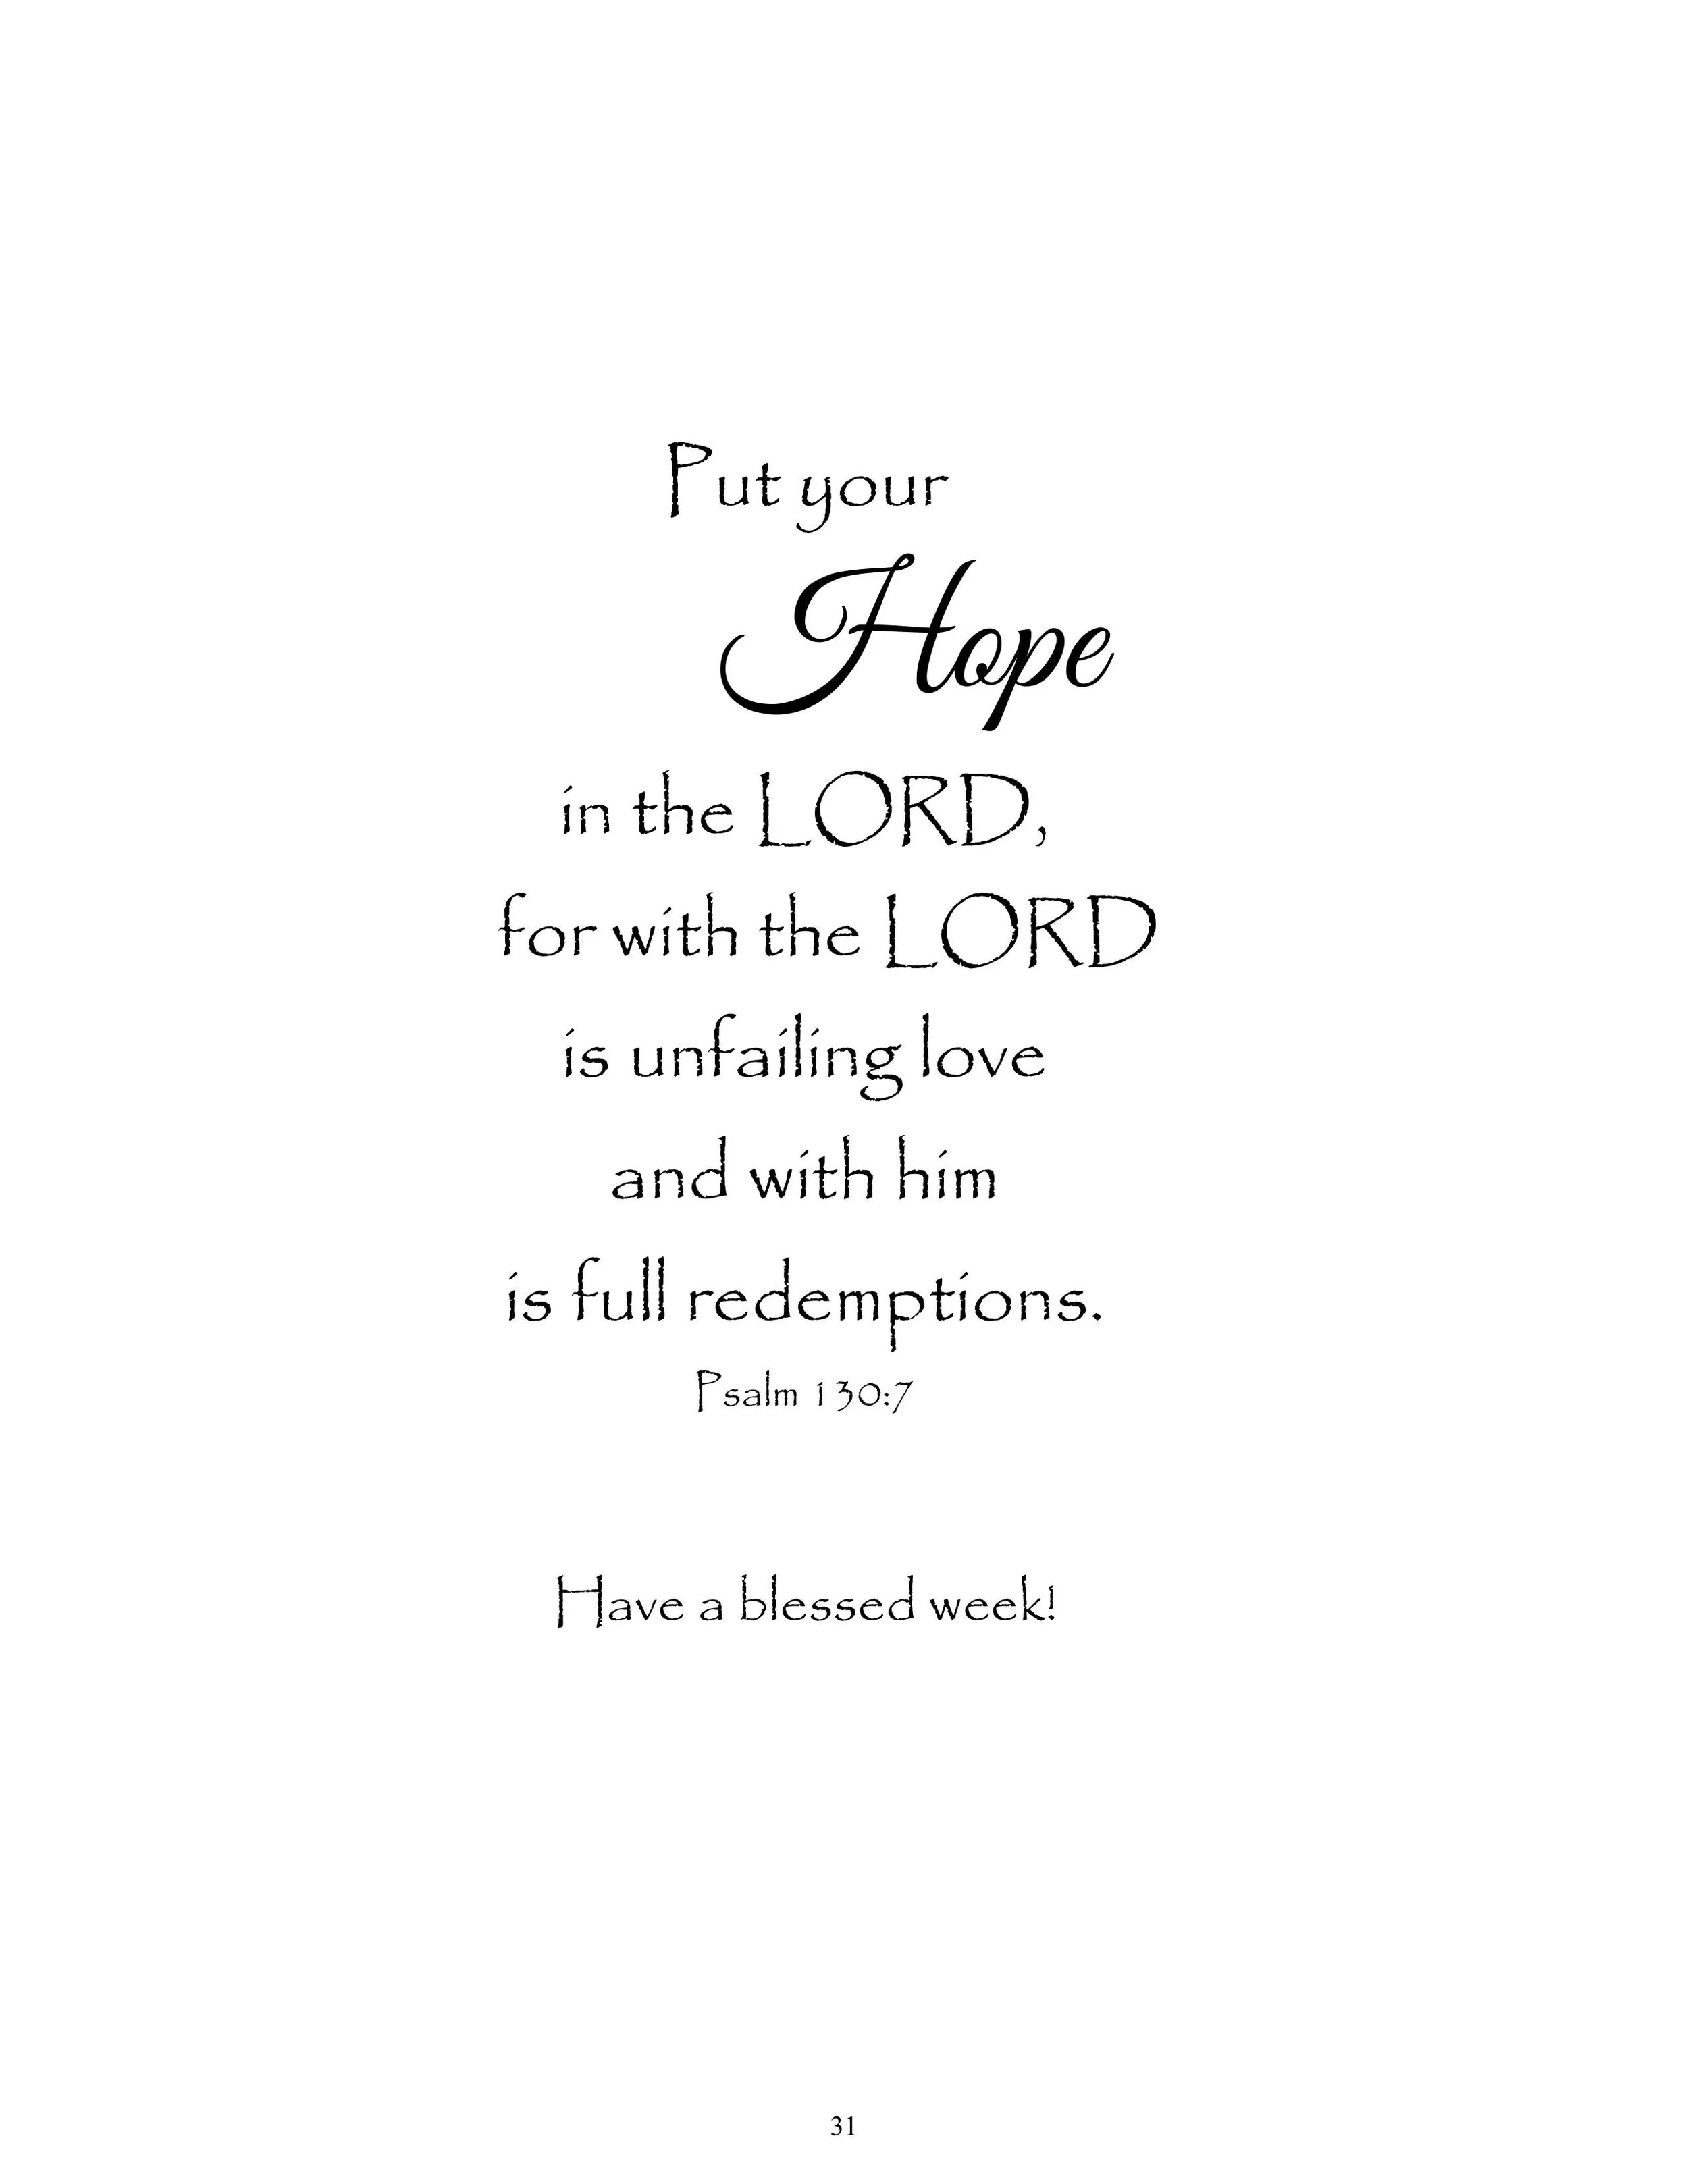 Put your
Hope
in the LORD,
for with the LORD
is unfailing love
and with him
is full redemptions.
Psalm 130:7
Have a blessed week!
31